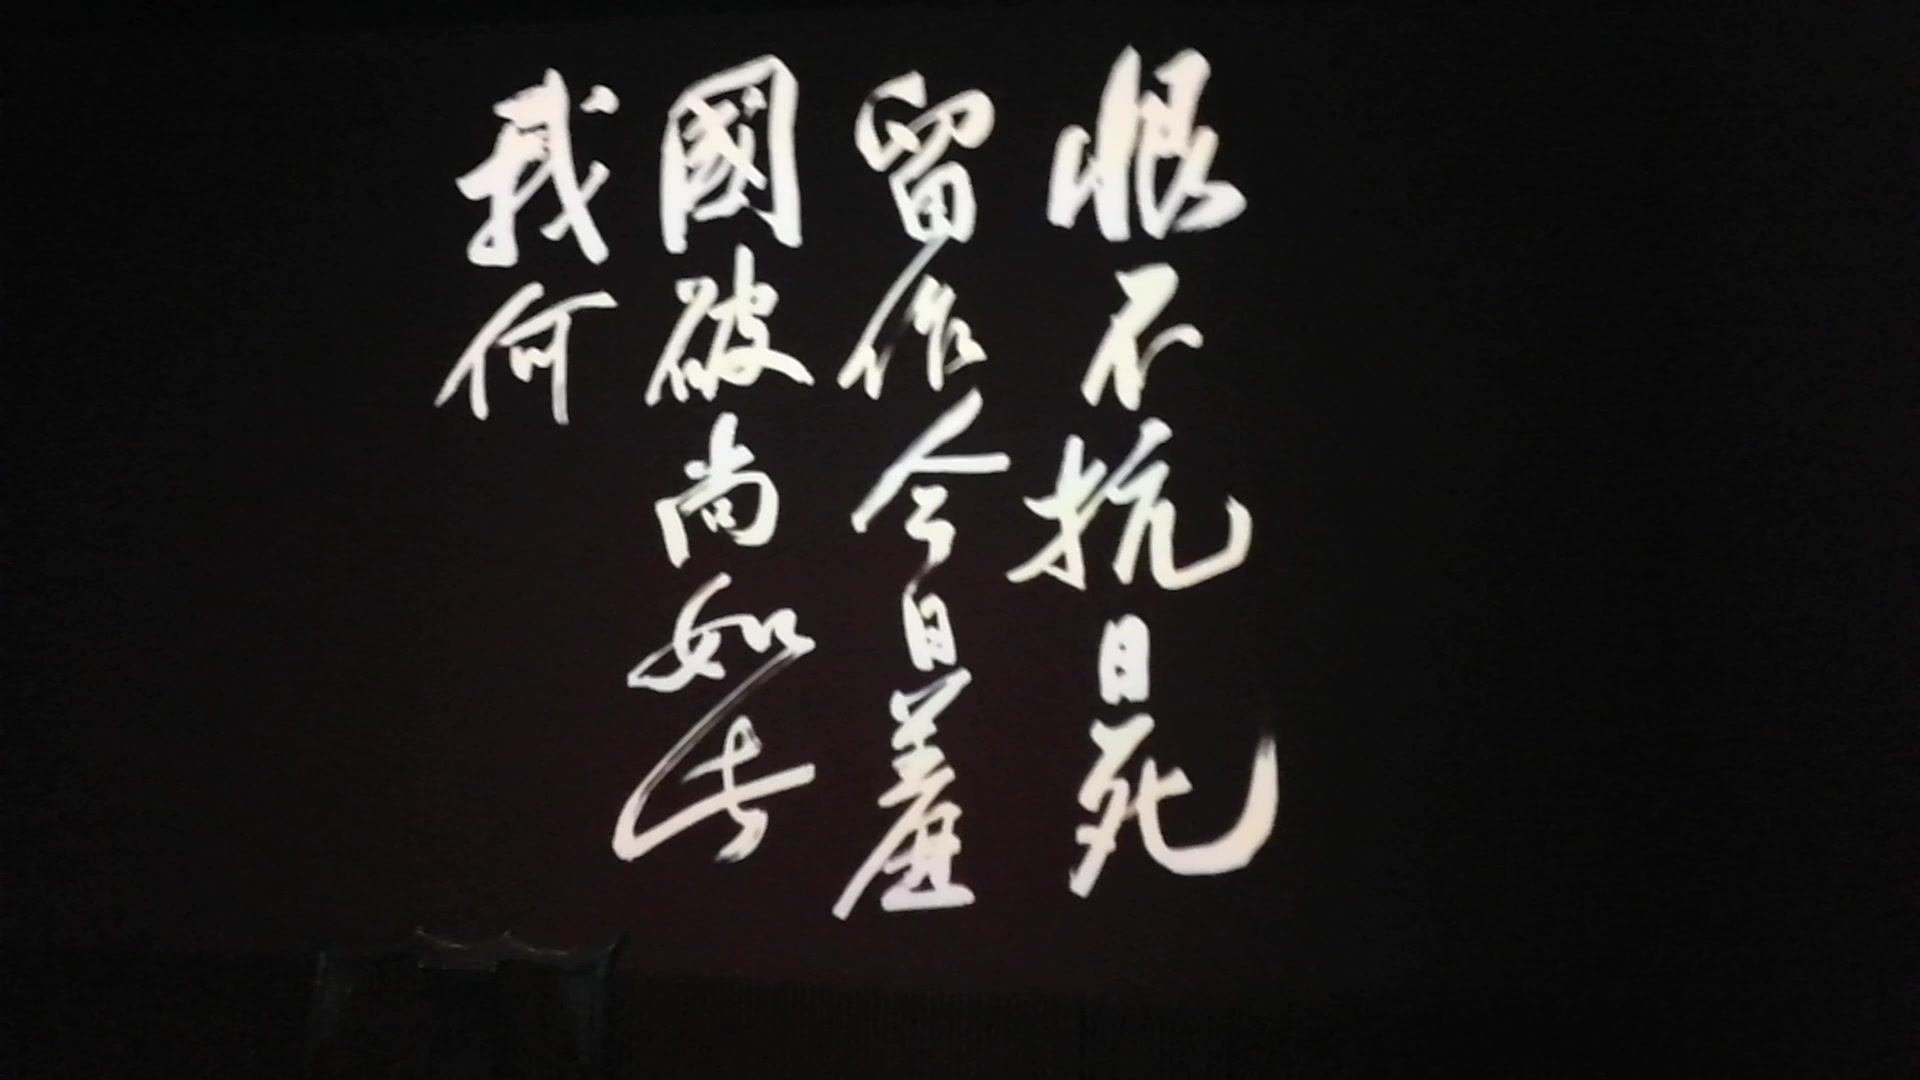 恨不抗日死
留作今日羞
國破尚如此
我何